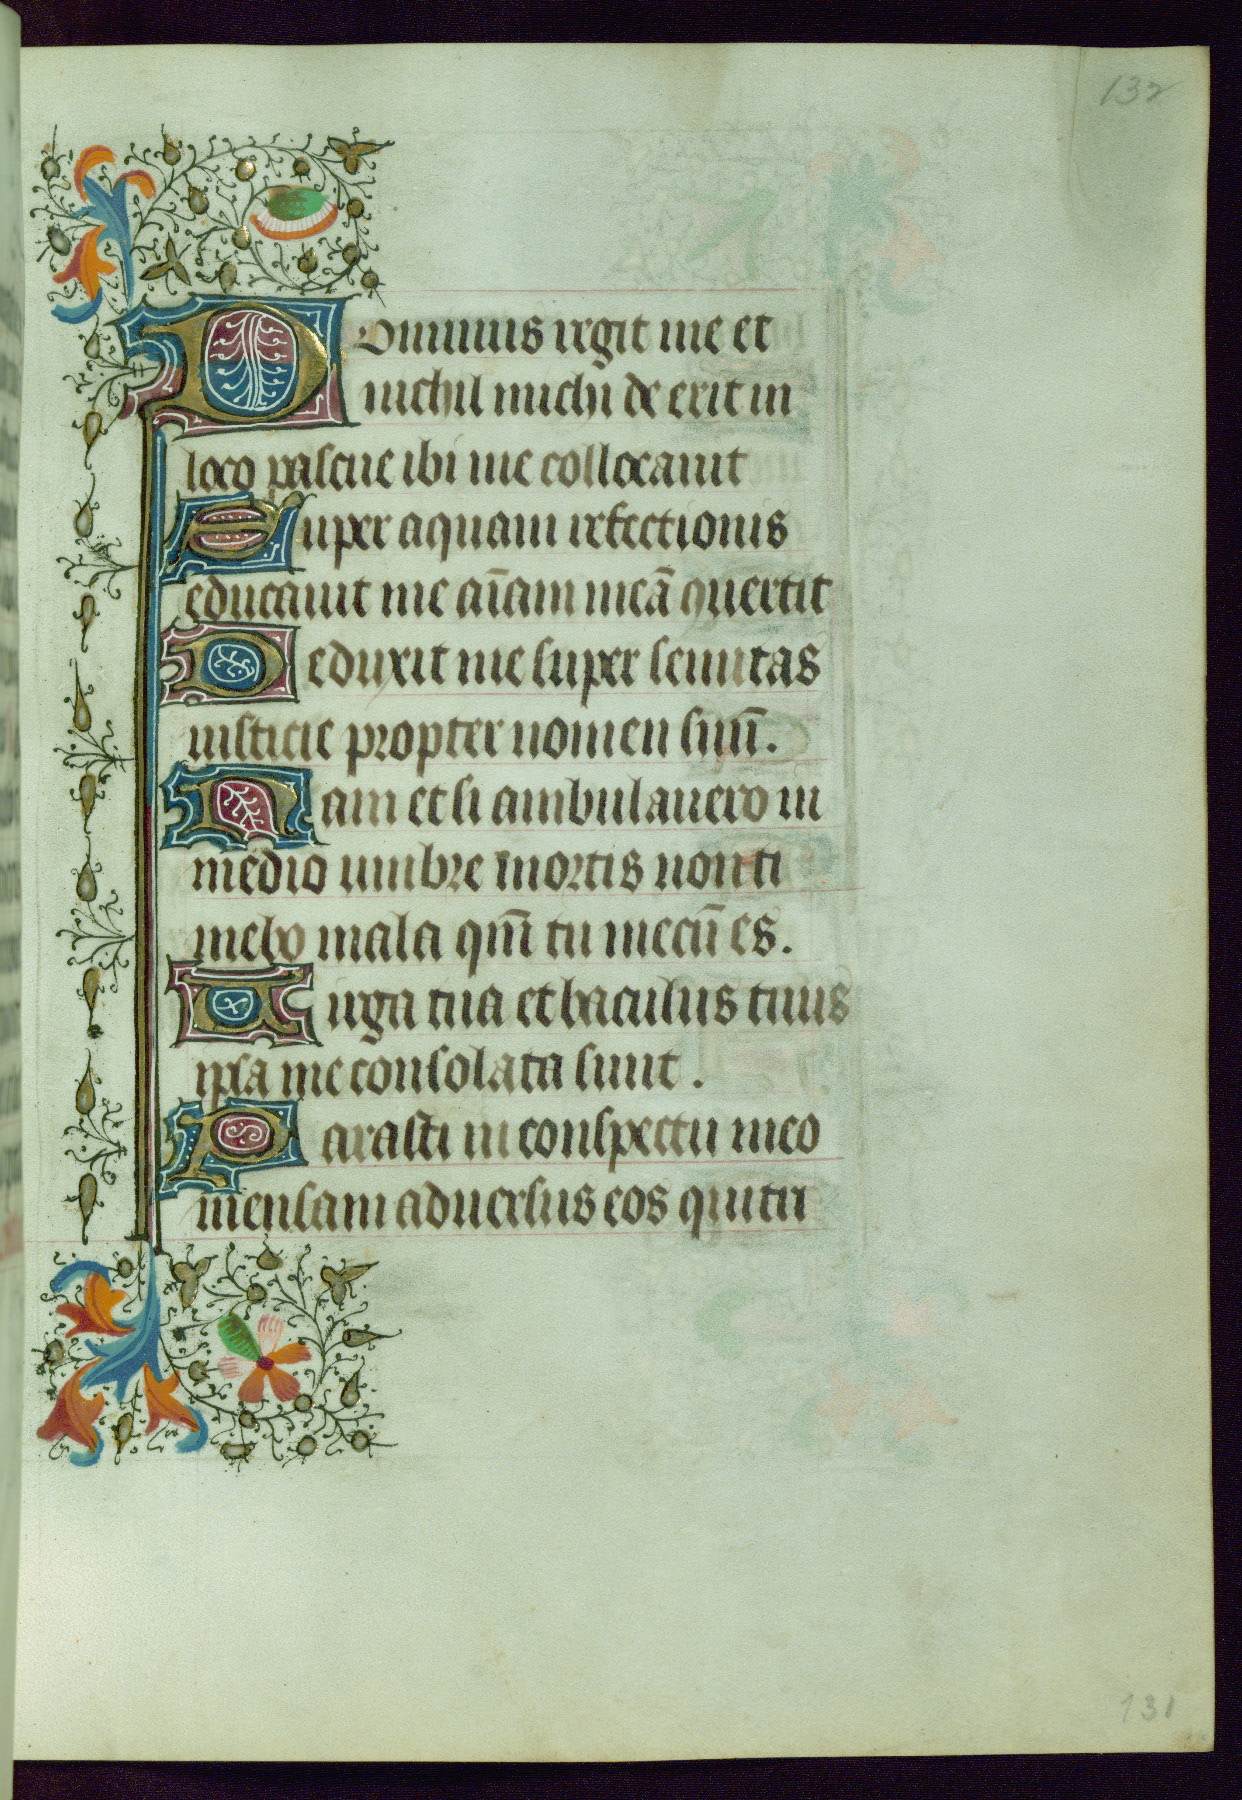 132
Dominus regit me et
nichil michi de erit in
loco pascue ibi me collocauit
Super aquam refectionis
educauit me aīam meā ꝯuertit
Deduxit me super semitas
iusticie propter nomen suū.
Nam et si ambulauero in
medio umbre mortis non ti
mebo mala qm̄ tu mecū es.
Uirga tua et baculus tuus
ipsa me consolata sunt.
Parasti in conspectu meo
mensam aduersus eos qui tri
131